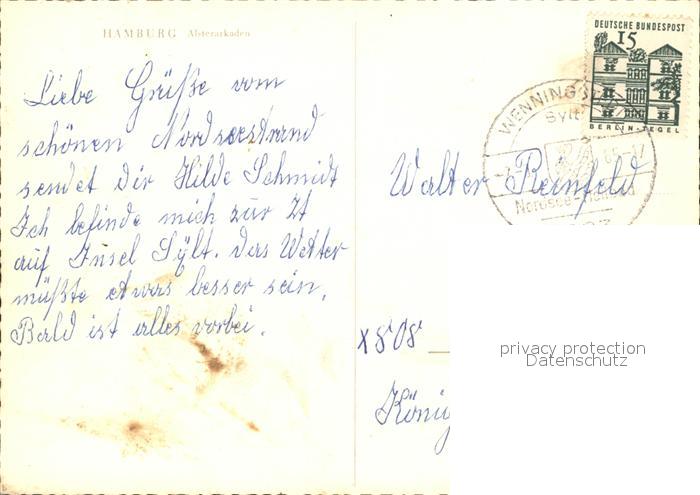 HAMBURG Alsterarkaden
Liebe Grüße vom
schönen Nordseestrand
sendet dir Hilde Schmidt
Ich befinde mich zur Zt
auf Insel Sylt. Das Wetter
müßte etwas besser sein.
Bald ist alles vorbei.
DEUTSCHE BUNDESPOST
15
BERLIN-TEGEL
Sylt
65-17
Walter Reinfeld
X808
Köni
privacy protection
Datenschutz